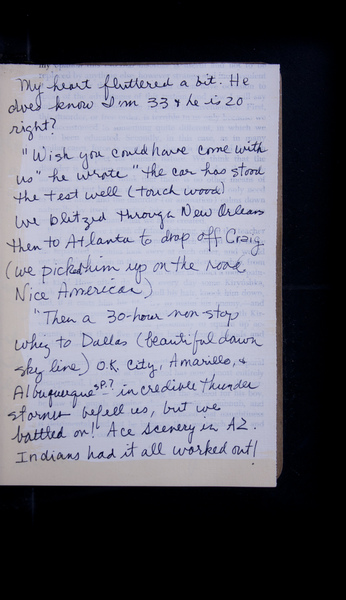 My heart fluttered a bit. He
does know I'm 33 & he is 20
right?
"Wish you could have come with
us" he wrote "the car has stood
the test well (touch wood)
We blitzed through New Orleans
then to Atlanta to drop off Craig
(we picked him up on the road
Nice American)
"Then a 30-hour non stop
whiz to Dallas (beautiful dawn
sky line) O.K. City, Amarillo, &
Albuquerque sp.? incredible thunder
storms befell us, but we
battled on! Ace scenery in AZ.
Indians had it all worked out!